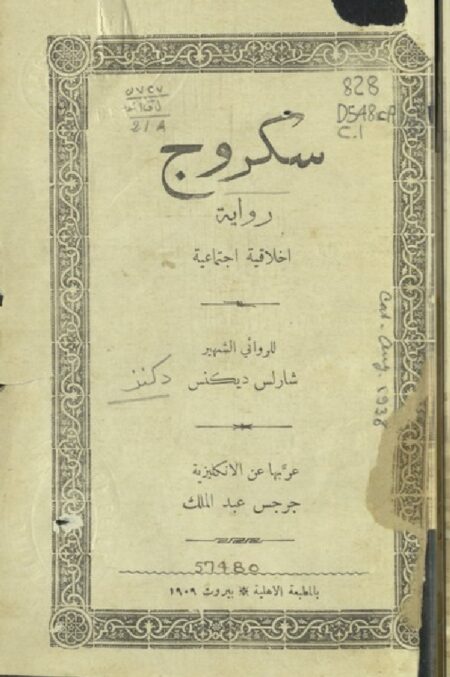 828
D548cA
C.1
218
سكروج
رواية
اخلاقية اجتماعية
للروائي الشهير
شارلس ديكنس
دكنز
عرَّبها عن الانكليزية
جرجس عبد الملك
57480
بالمطبعة الاهلية * بيروت ١٩٠٩
Cat. Aug. 1938